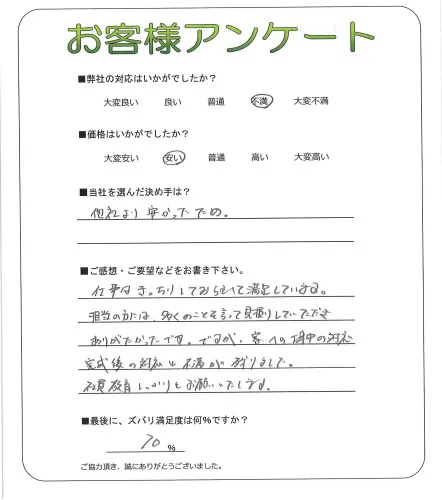 お客様アンケート
■弊社の対応はいかがでしたか?
大変良い 良い 普通 不満 大変不満
■価格はいかがでしたか?
大変安い 安い 普通 高い 大変高い
■当社を選んだ決め手は?
他社より安かったため。
■ご感想・ご要望などをお書き下さい。
仕事はきっちりしておられて満足しています。
担当の方には、多くのことを言って見積りしていただき
ありがたかったです。ですが、客への途中の対応
完成後の対応と不満が残りました。
社員教育しっかりとお願いいたします。
■最後に、ズバリ満足度は何%ですか?
70 %
ご協力頂き、誠にありがとうございました。